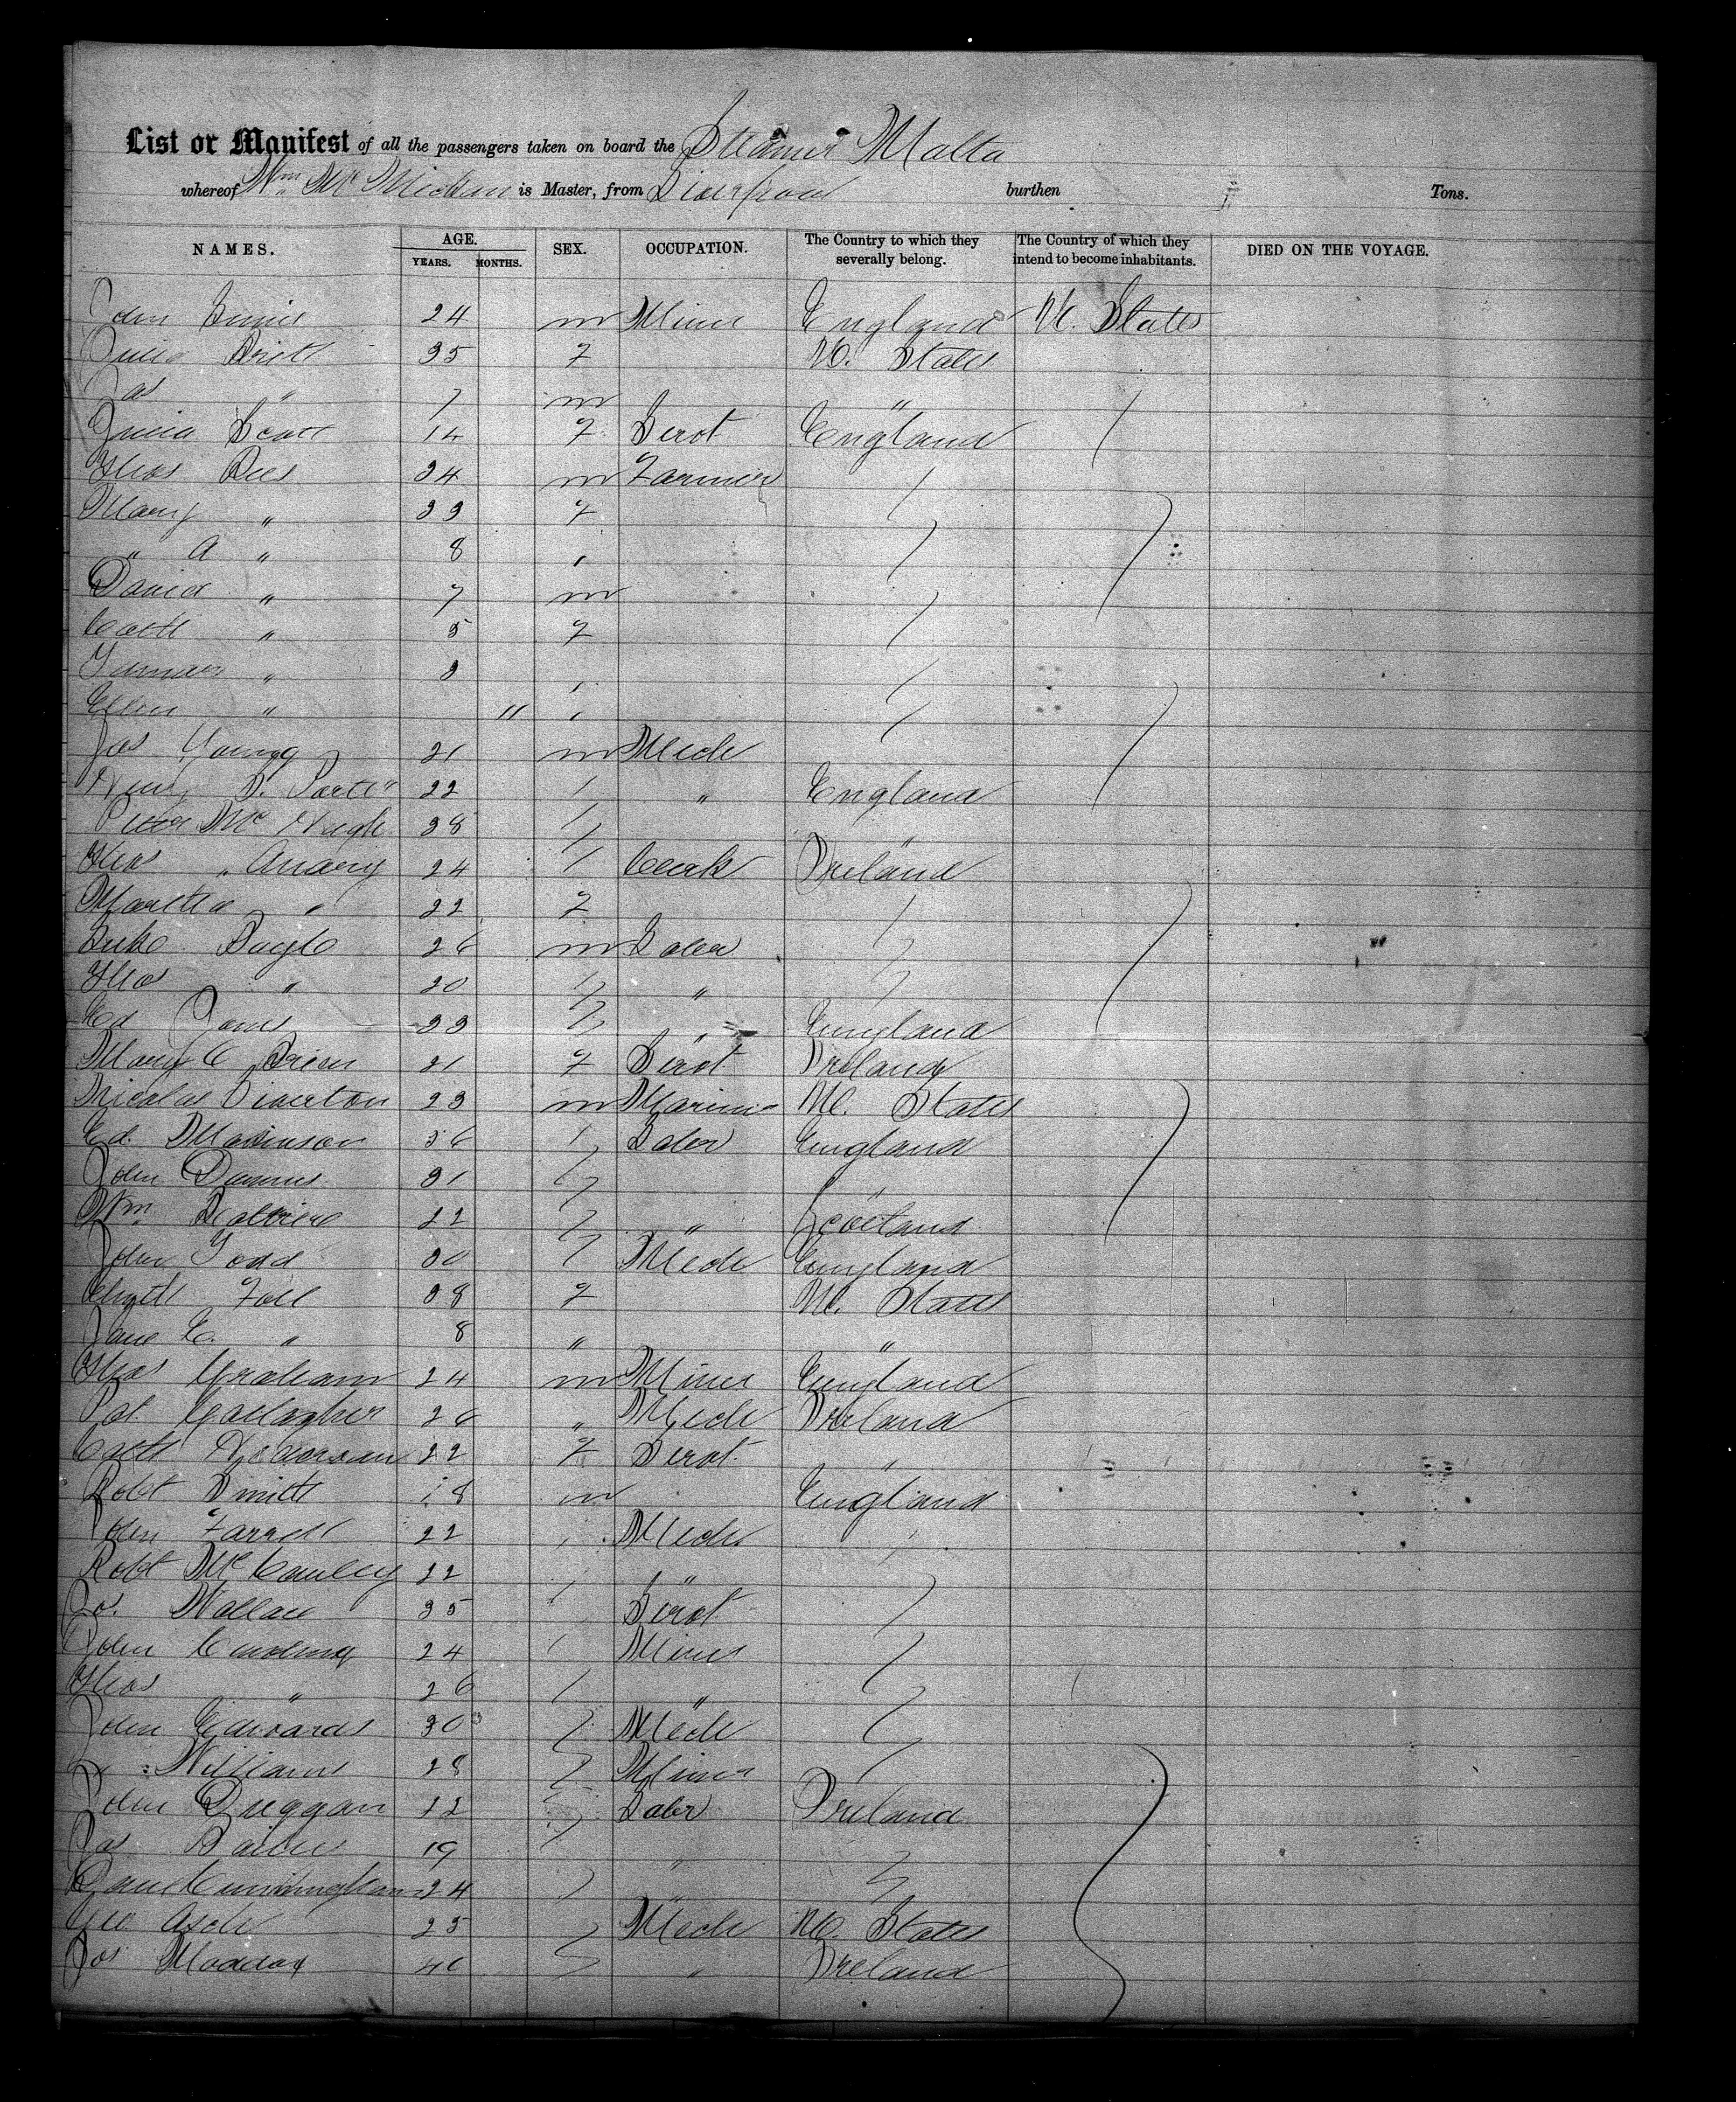 List or Manifest of all the passengers taken on board the Steamer Malta
whereof Wm Mc Micken is Master, from Liverpool burthen Tons.
NAMES. AGE. YEARS. MONTHS. SEX. OCCUPATION. The Country to which they severally belong. The Country of which they intend to become inhabitants. DIED ON THE VOYAGE.
John 24 m Miner England U. States
Julia Britt 35 f U. States
Jas " 7 m "
Julia Scott 14 f Servt England
Thos Rees 34 m Farmer
Mary " 33 f
" A " 8
David " 7 m
Cath " 5 f
" 3
Ellen " 11
Jos Young 21 m Mech
Henry B. Porter 22 " England
Peter Mc Hugh 38
Thos " Anany 24 Clerk Ireland
Martha " 22 f
Luke Doyle 26 m Labor
Thos " 20 "
Ed Jones 33 " England
Mary O Brien 21 f Servt Ireland
Nicolas Liverton 23 m Mariner U. States
Ed. Makinson 36 Labor England
John Downes 31 "
Wm 22 " Scotland
John Todd 30 Mech England
Elizth Foll 38 f U. States
Jane E. " 8 " "
Thos Graham 24 m Miner England
Pat Gallagher 26 " Mech Ireland
Cath 22 f Servt "
Robt Smith 18 m England
John Farrell 22 Mech
Robt Mc Cauley 22 "
Jos. Wallace 35 Servt
John 24 Miner
Thos " 26 "
John Edwards 30 Mech
" Williams 28 Miner
John Duggan 22 Labr Ireland
Jas 19 "
Danl Cunningham 24 "
Geo Asch 25 Mech U. States
Jos Maddox 40 " Ireland